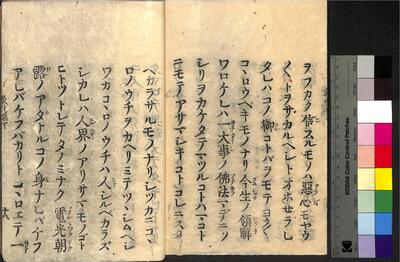 ヲフカク信スルモノハ惡心モヤウ
〱トヲサカルヘシトオホセラレ
タレハコノ御コトハラモテヨク〱
コヽロウヘキモノナリ今生ノ領解
ワロケレハ一大事ノ佛法ハマテニ
シリヲカケタテマツルコトハマコト
ニモテアサマシキコトコレニスキ
ヘカラサルモノナリシツカニコヽ
ロノウチヲカヘリミテツヽシムヘシ
ワカコヽロノウチハ人シルベカラズ
シカレハ人界ノアリサマモノゴト
ヒトツトレテタノミナク電光朝
露ノアダナルコノ身ナレハケフ
アレバケフバカリトコヽロエテ一
KODAK Color Control Patches